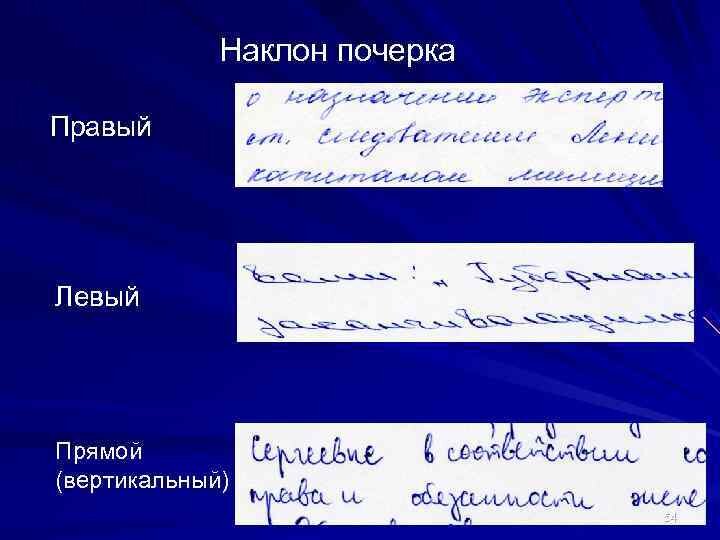 Наклон почерка
Правый
о назначении эксперт
ст. следователем Лени
капитаном милиции
Левый
вами: „ Губернат
заканчивающимся
Прямой
(вертикальный)
Сергеевне в соответствии со
права и обязанности экспе
54